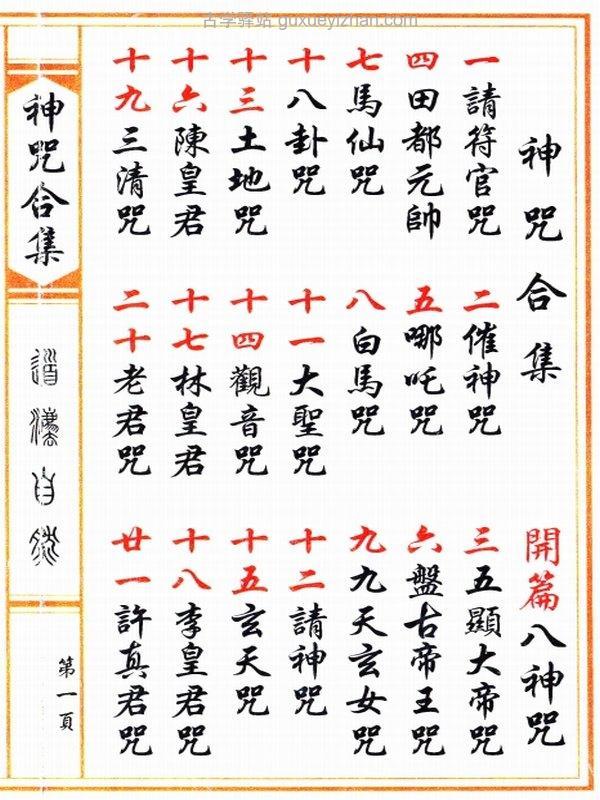 古学驿站 guxueyizhan.com
神咒合集 開篇八神咒
一請符官咒 二催神咒 三五顯大帝咒
四田都元帥 五哪吒咒 六盤古帝王咒
七馬仙咒 八白馬咒 九九天玄女咒
十八卦咒 十一大聖咒 十二請神咒
十三土地咒 十四觀音咒 十五玄天咒
十六陳皇君 十七林皇君 十八李皇君咒
十九三清咒 二十老君咒 廿一許真君咒
神咒合集
道灋自然
第一頁